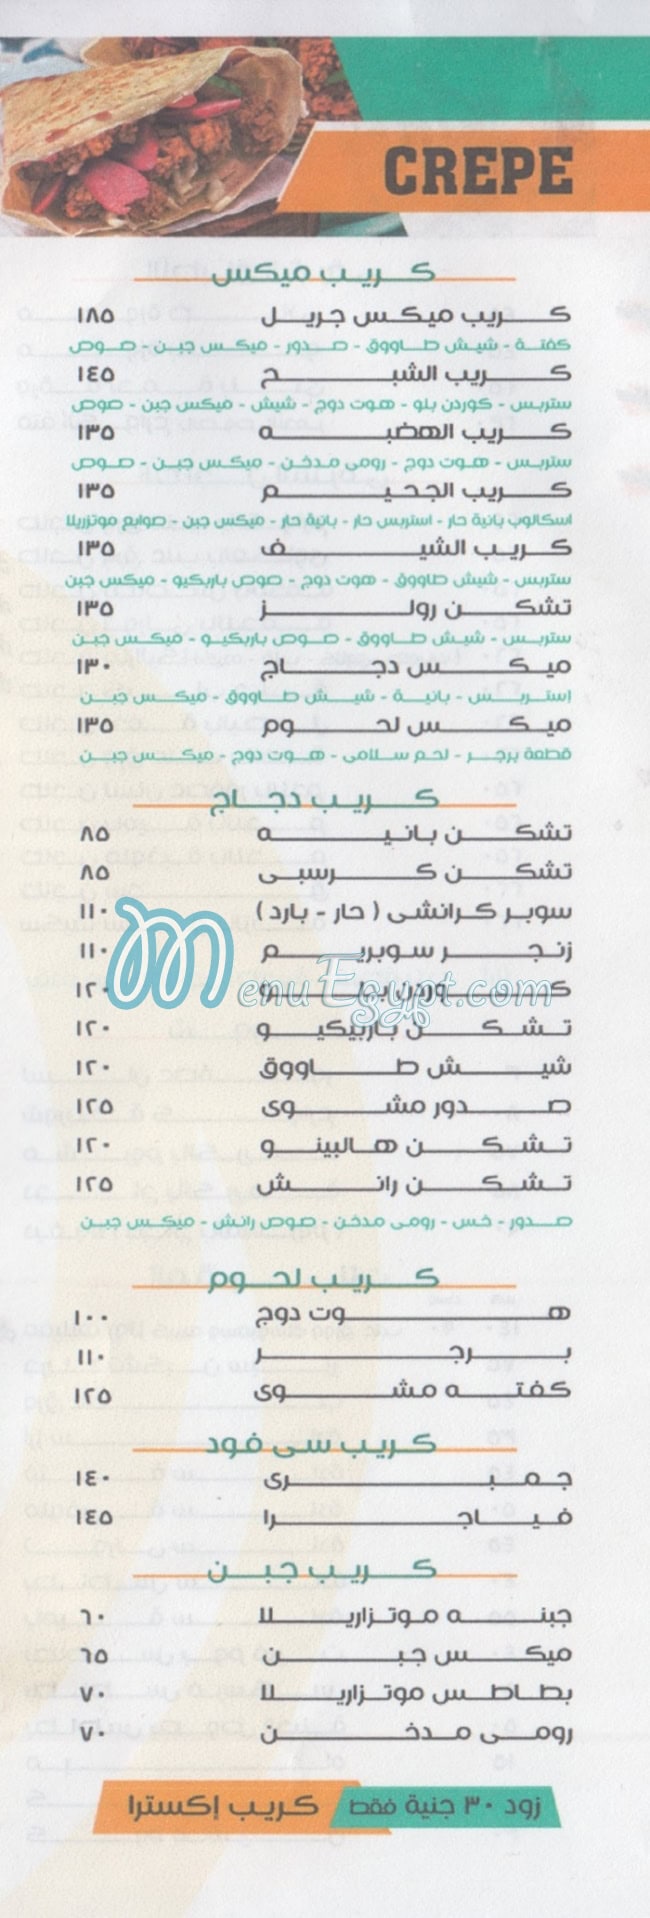 CREPE
كريب ميكس
كريب ميكس جريل ١٨٥
كفتة - شيش طاووق - صدور - ميكس جبن - صوص
كريب الشبح ١٤٥
ستربس - كوردن بلو - هوت دوج - شيش - ميكس جبن - صوص
كريب الهضبه ١٣٥
ستربس - هوت دوج - رومى مدخن - ميكس جبن - صوص
كريب الجحيم ١٣٥
اسكالوب بانية حار - استربس حار - بانية حار - ميكس جبن - صوابع موتزريلا
كريب الشيف ١٣٥
ستربس - شيش طاووق - هوت دوج - صوص باربكيو - ميكس جبن
تشكن رولز ١٣٥
ستربس - شيش طاووق - صوص باربكيو - ميكس جبن
ميكس دجاج ١٣٠
إستربس - بانية - شيش طاووق - ميكس جبن
ميكس لحوم ١٣٥
قطعة برجر - لحم سلامى - هوت دوج - ميكس جبن
كريب دجاج
تشكن بانيه ٨٥
تشكن كرسبى ٨٥
سوبر كرانشى ( حار - بارد ) ١١٠
زنجر سوبريم ١١٠
كوردن بلو ١٢٠
MenuEgypt.com
تشكن باربيكيو ١٢٠
شيش طاووق ١٢٠
صدور مشوى ١٢٥
تشكن هالبينو ١٢٠
تشكن رانش ١٢٥
صدور - خس - رومى مدخن - صوص رانش - ميكس جبن
كريب لحوم
هوت دوج ١٠٠
برجر ١١٠
كفته مشوى ١٢٥
كريب سى فود
جمبرى ١٤٠
فياجرا ١٤٥
كريب جبن
جبنه موتزاريلا ٦٠
ميكس جبن ٦٥
بطاطس موتزاريلا ٧٠
رومى مدخن ٧٠
زود ٣٠ جنية فقط كريب إكسترا